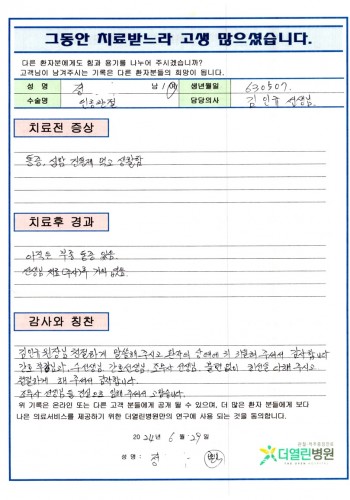 그동안 치료받느라 고생 많으셨습니다.
다른 환자분에게도 힘과 용기를 나누어 주시겠습니까?
고객님이 남겨주시는 기록은 다른 환자분들의 희망이 됩니다.
성 명 경 남 / 여 생년월일 630507.
수술명 인공관절 담당의사 김 선생님
치료전 증상
통증, 먹고 생활함
치료후 경과
아직은 부종 통증 있음.
선생님 치료(주사)후 거의 없음.
감사와 칭찬
친절하게 말씀해 주시고 환자의 주셔서 감사합니다
간호 수선생님, 간호선생님, 불편없이 최선을 다해 주시고
친절하게 해 주셔서 감사합니다.
선생님들 주셔서 고맙습니다.
위 기록은 온라인 또는 다른 고객 분들에게 공개 될 수 있으며, 더 많은 환자 분들에게 보다
나은 의료서비스를 제공하기 위한 더열린병원만의 연구에 사용 되는 것을 동의합니다.
2024년 6월 29일
성 명 : 경 (인)
더열린병원